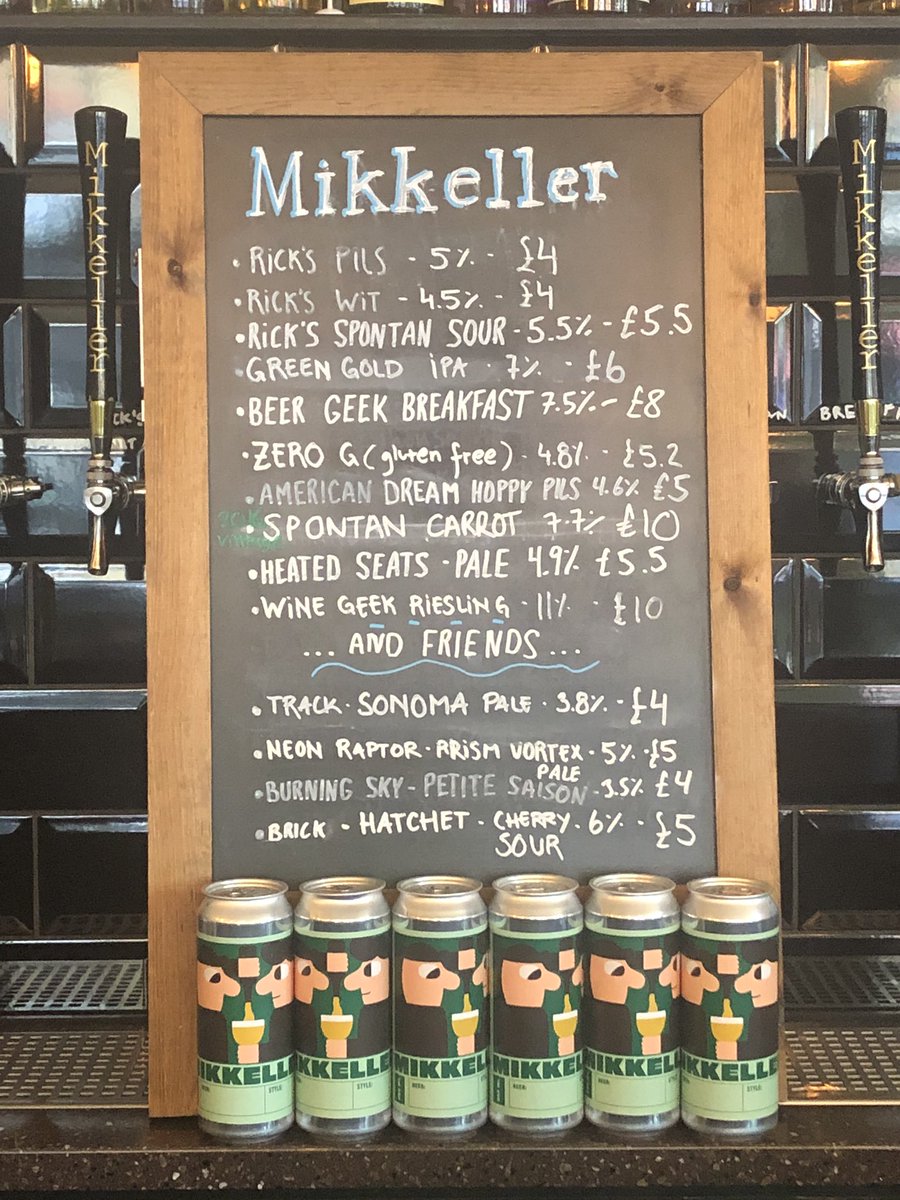 Mikkeller
• RICK'S PILS - 5% - £4
• RICK'S WIT - 4.5% - £4
• RICK'S SPONTAN SOUR - 5.5% - £5.5
• GREEN GOLD IPA - 7% - £6
• BEER GEEK BREAKFAST 7.5% - £8
• ZERO G (gluten free) - 4.8% - £5.2
• AMERICAN DREAM HOPPY PILS 4.6% £5
• SPONTAN CARROT 7.7% £10
• HEATED SEATS - PALE 4.9% £5.5
• WINE GEEK RIESLING - 11% - £10
... AND FRIENDS ...
• TRACK - SONOMA PALE - 3.8% - £4
• NEON RAPTOR - PRISM VORTEX - 5% - £5
PALE
• BURNING SKY - PETITE SAISON - 3.5% £4
• BRICK - HATCHET - CHERRY - 6% - £5
SOUR
Mikkeller
Mikkeller
MIKKELLE
MIKKELLE
MIKKELL
MIKKELL
MIKKELLE
MIKKELLE
BEER:
STYLE: